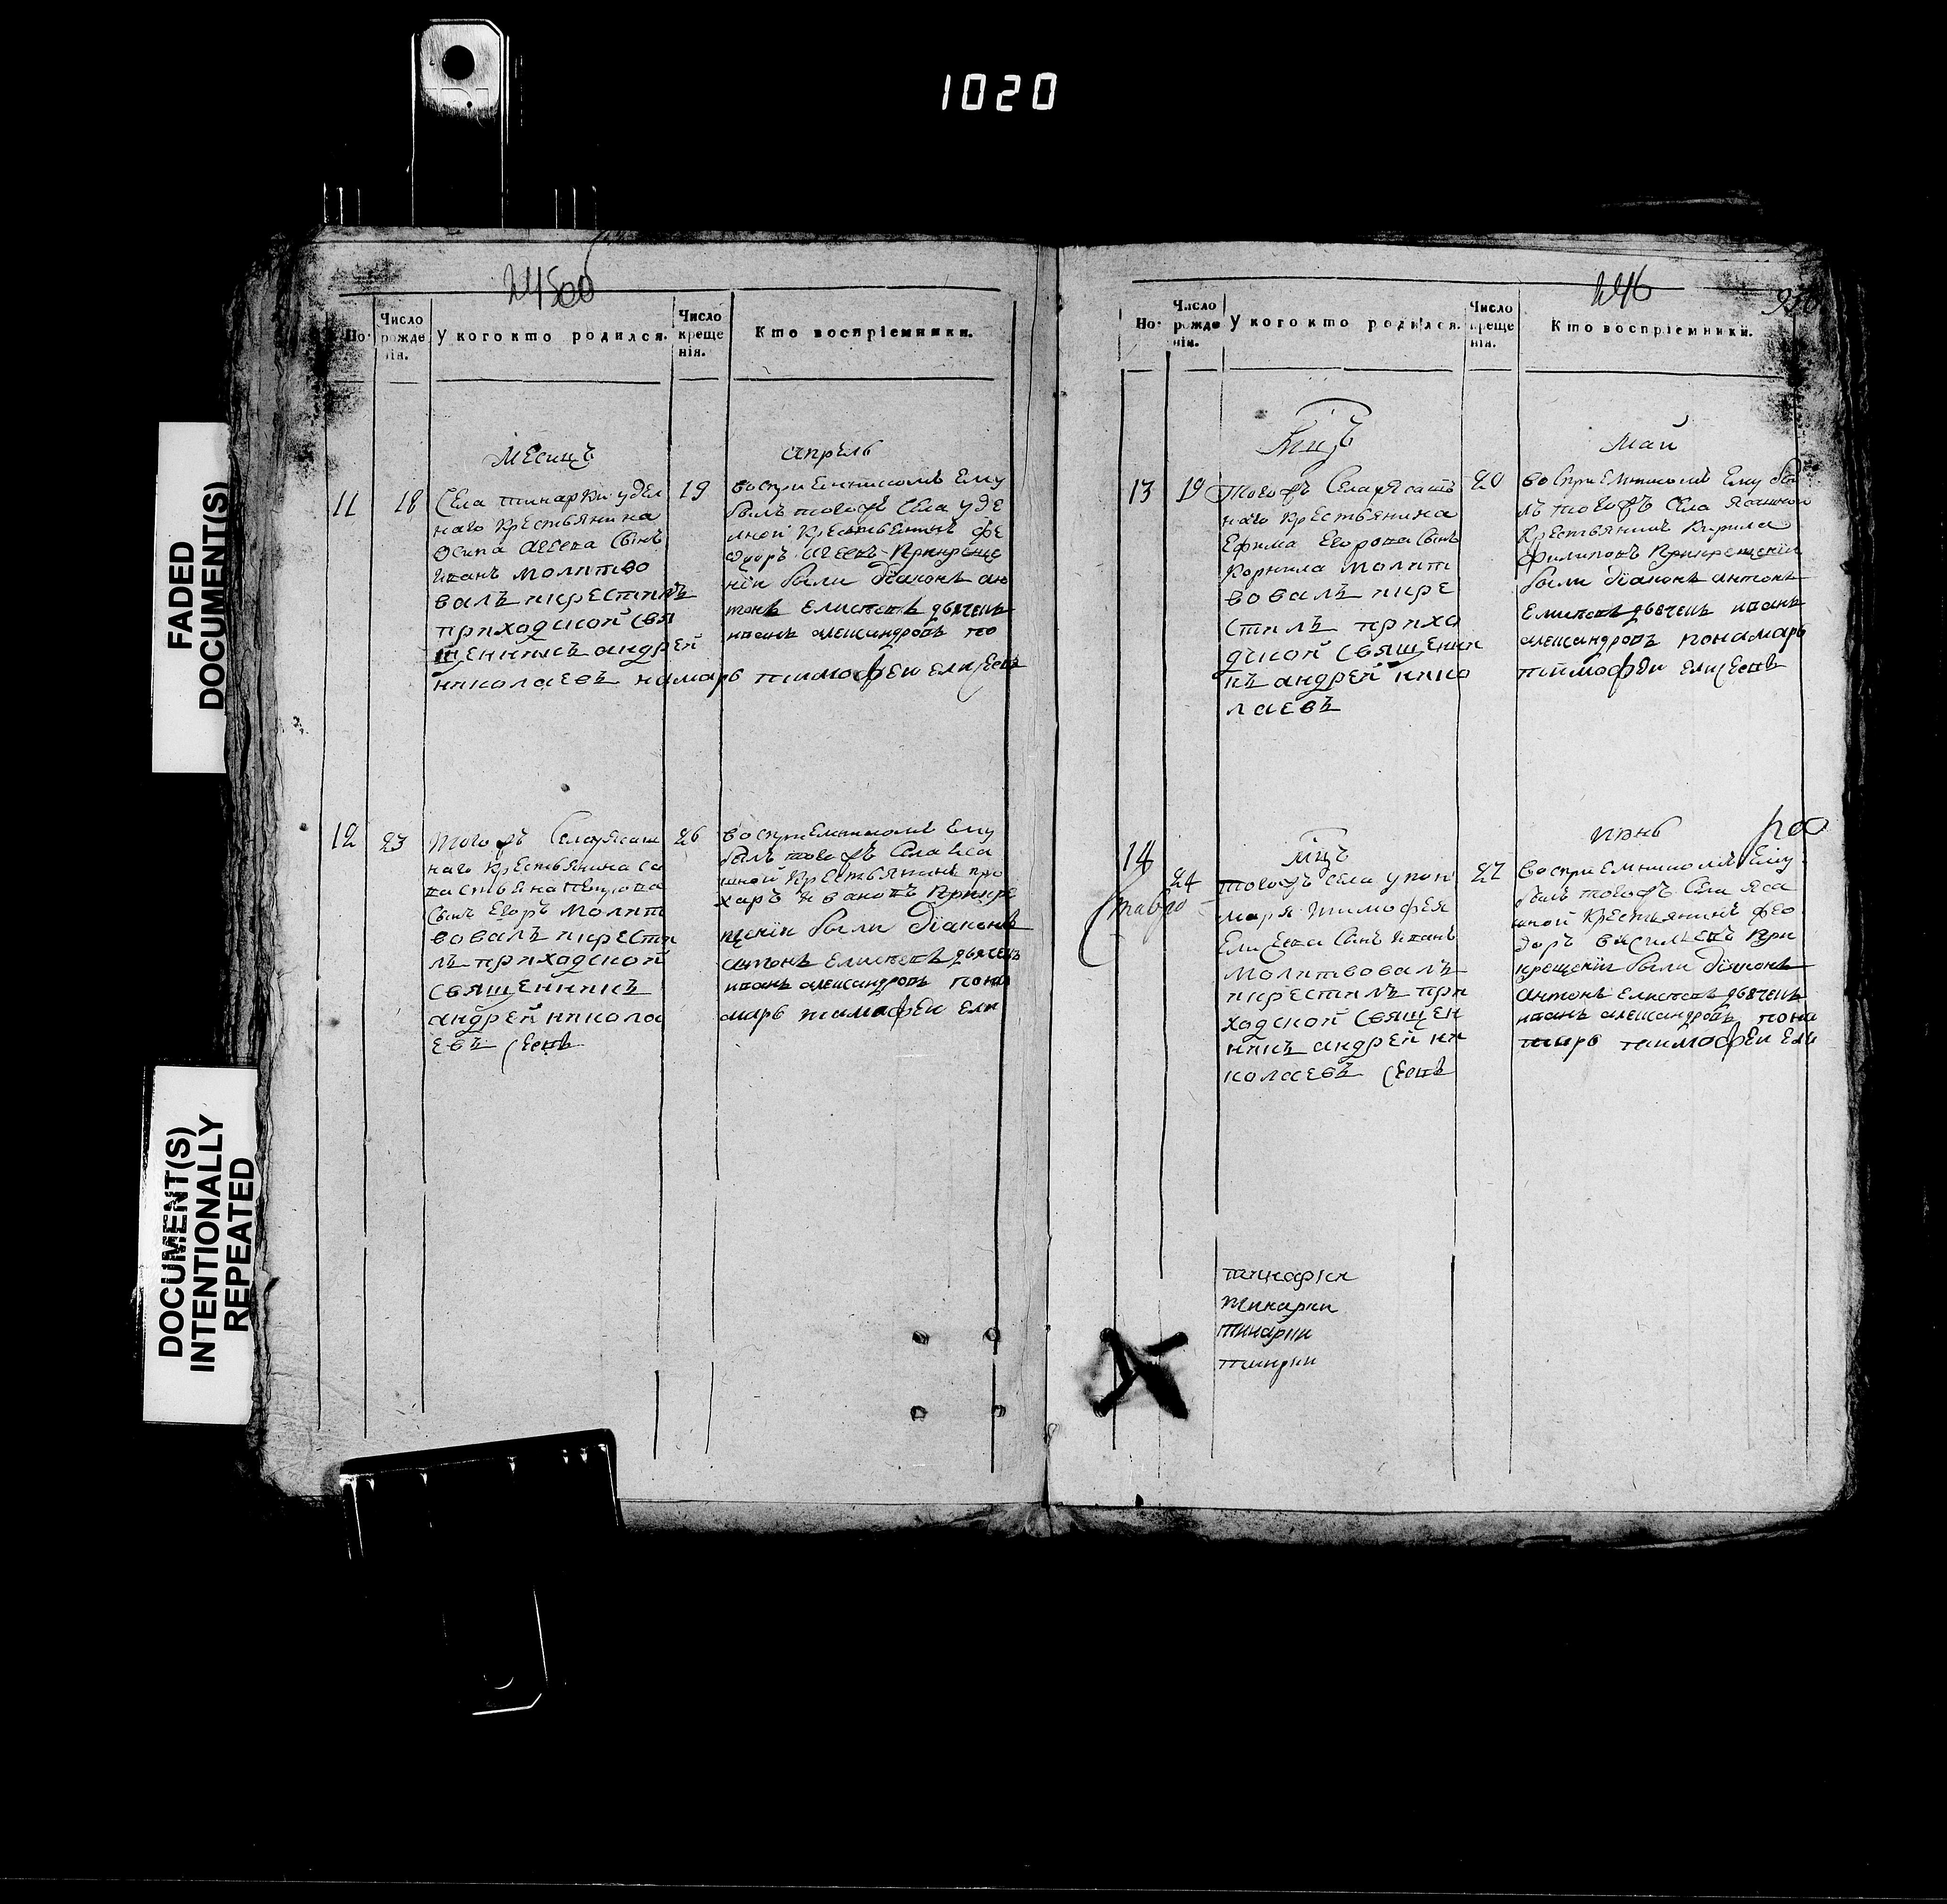 1020
FADED
DOCUMENT(S)
DOCUMENT(S)
INTENTIONALLY
REPEATED
Но.
Число
рожде
нія.
У кого кто родился.
Число
креще
нія.
Кто воспріемники.
Месицъ
апрѣль
11
18
Села тинарки удел
наго крестьянина
Осипа агеева сынъ
иванъ молитво
валъ икрестилъ
приходской свя
щенникъ андрей
николаевъ
19
воспріемникомъ ему
былъ тогожъ села уде
лной крестьянинъ фе
доръ агеевъ прикреще
ніи были діаконъ ан
тонъ елисеевъ дьячекъ
иванъ александровъ по
намарь тимофеи елисеевъ
12
23
тогожъ села ясаш
наго крестьянина са
вастьяна
сынъ егоръ молит
вовалъ икрести
лъ приходской
священникъ
андрей никола
евъ
26
воспріемникомъ ему
былъ тогожъ села яса
шной крестьянинъ про
харъ ивановъ прикре
щеніи были діаконъ
антонъ елисеевъ дьячекъ
иванъ александровъ пона
марь тимофеи ели
сеевъ
246
Но.
Число
рожде
нія.
У кого кто родился.
Число
креще
нія.
Кто воспріемники.
Мцъ
Май
13
19
тогожъ села ясаш
наго крестьянина
Ефима егорова сынъ
корнила молит
вовалъ икре
стилъ прихо
дской священни
къ андрей нико
лаевъ
20
воспріемникомъ ему бы
лъ тогожъ села ясашной
крестьянинъ кирила
филиповъ прикрещеніи
были діаконъ антонъ
елисеевъ дьячекъ иванъ
александровъ понамарь
тимофеи елисеевъ
Мцъ
июнь
14
24
тогожъ села упон
маря тимофея
елисеева сынъ иванъ
молитвовалъ
икрестилъ при
ходской священ
никъ андрей ни
колаевъ
27
воспріемникомъ ему
былъ тогожъ села яса
шной крестьянинъ фео
доръ васильевъ при
крещеніи были діаконъ
антонъ елисеевъ дьячекъ
иванъ александровъ пона
марь тимофеи ели
сеевъ
тинарки
тинарки
тинарки